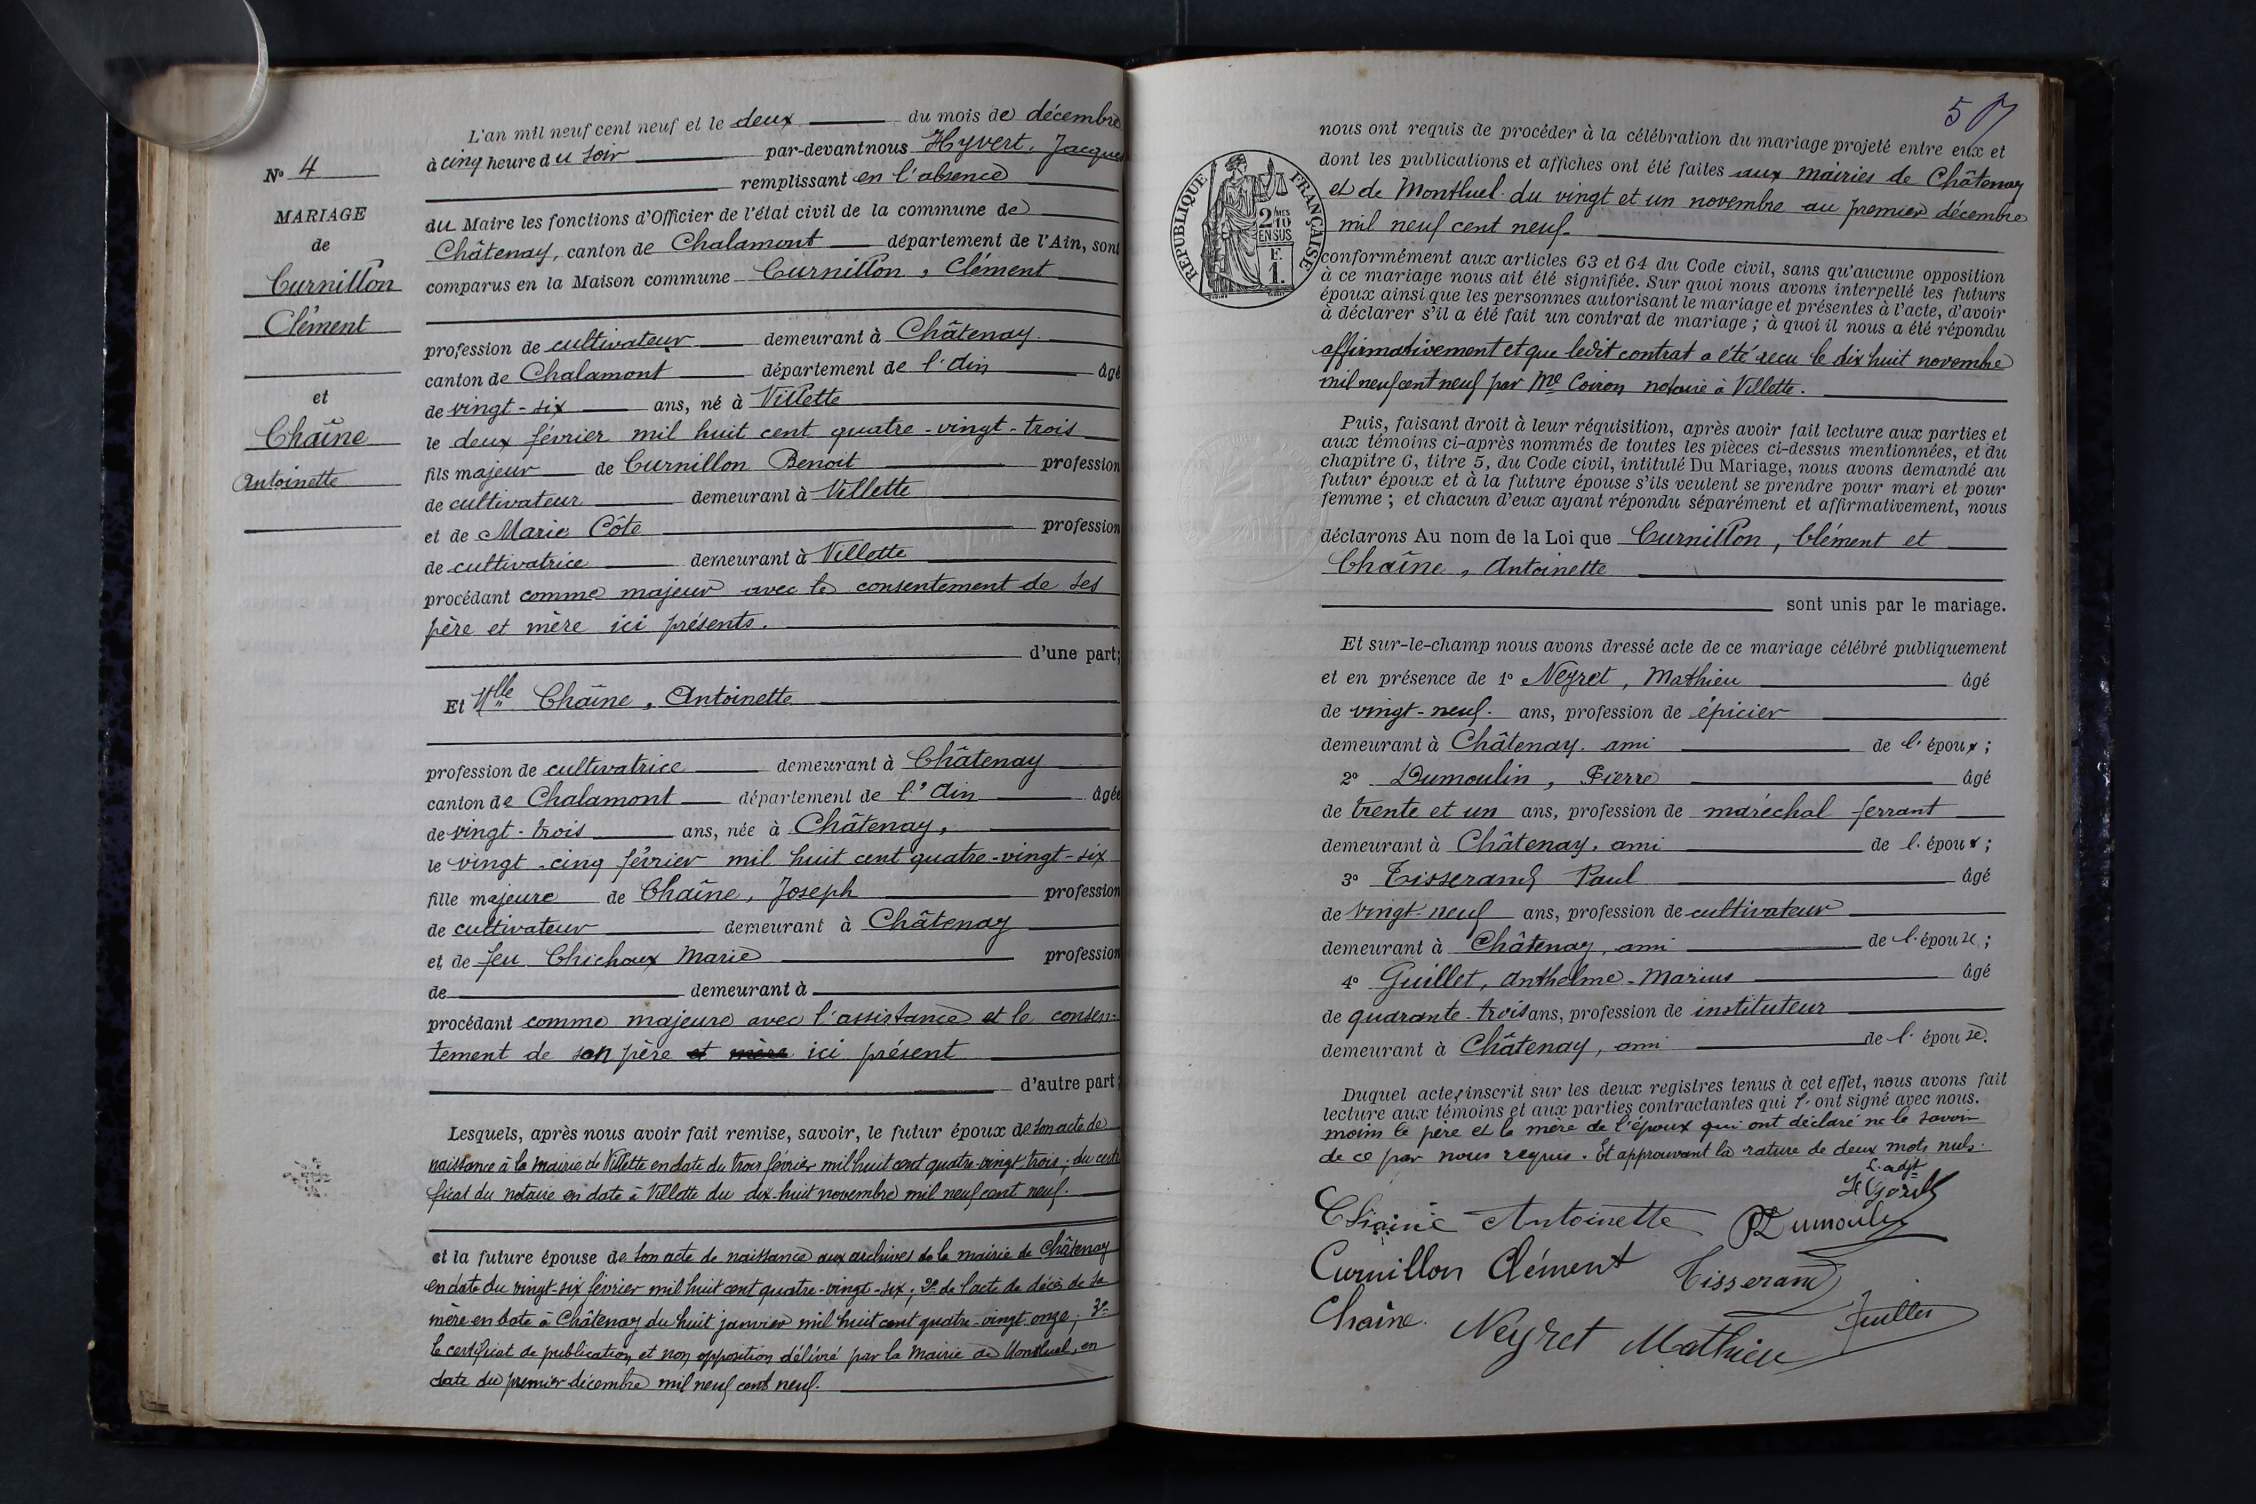 N° 4
MARIAGE
de
Curnillon
Clément
et
Chaîne
Antoinette
L'an mil neuf cent neuf et le deux du mois de décembre
à cinq heure du soir par-devant nous Hyvert, Jacques
remplissant en l'absence
du Maire les fonctions d'Officier de l'état civil de la commune de
Châtenay, canton de Chalamont département de l'Ain, sont
comparus en la Maison commune Curnillon, Clément
profession de cultivateur demeurant à Châtenay
canton de Chalamont département de l'Ain âgé
de vingt-six ans, né à Villette
le deux février mil huit cent quatre-vingt-trois
fils majeur de Curnillon Benoit profession
de cultivateur demeurant à Villette
et de Marie Côte profession
de cultivatrice demeurant à Villette
procédant comme majeur avec le consentement de ses
père et mère ici présents.
d'une part;
Et Mlle Chaîne, Antoinette
profession de cultivatrice demeurant à Châtenay
canton de Chalamont département de l'Ain âgée
de vingt-trois ans, née à Châtenay,
le vingt-cinq février mil huit cent quatre-vingt-six
fille majeure de Chaîne, Joseph profession
de cultivateur demeurant à Châtenay
et de feu Chichoux Marie profession
de demeurant à
procédant comme majeure avec l'assistance et le consen-
tement de son père et mère ici présent
d'autre part;
Lesquels, après nous avoir fait remise, savoir, le futur époux de son acte de
naissance à la mairie de Villette en date du trois février mil huit cent quatre-vingt trois; du certi
ficat du notaire en date à Villette du dix-huit novembre mil neuf cent neuf.
et la future épouse de son acte de naissance aux archives de la mairie de Châtenay
en date du vingt-six février mil huit cent quatre-vingt-six; 2° de l'acte de décès de sa
mère en date à Châtenay du huit janvier mil huit cent quatre-vingt onze; 3°
le certificat de publication et non opposition délivré par la mairie de Montluel, en
date du premier décembre mil neuf cent neuf.
57
RÉPUBLIQUE FRANÇAISE
2/10MES
EN SUS
F.
1.
nous ont requis de procéder à la célébration du mariage projeté entre eux et
dont les publications et affiches ont été faites aux mairies de Châtenay
et de Montluel du vingt et un novembre au premier décembre
mil neuf cent neuf.
conformément aux articles 63 et 64 du Code civil, sans qu'aucune opposition
à ce mariage nous ait été signifiée. Sur quoi nous avons interpellé les futurs
époux ainsi que les personnes autorisant le mariage et présentes à l'acte, d'avoir
à déclarer s'il a été fait un contrat de mariage; à quoi il nous a été répondu
affirmativement et que ledit contrat a été reçu le dix huit novembre
mil neuf cent neuf par Me Coiron notaire à Villette.
Puis, faisant droit à leur réquisition, après avoir fait lecture aux parties et
aux témoins ci-après nommés de toutes les pièces ci-dessus mentionnées, et du
chapitre 6, titre 5, du Code civil, intitulé Du Mariage, nous avons demandé au
futur époux et à la future épouse s'ils veulent se prendre pour mari et pour
femme; et chacun d'eux ayant répondu séparément et affirmativement, nous
déclarons Au nom de la Loi que Curnillon, Clément et
Chaîne, Antoinette
sont unis par le mariage.
Et sur-le-champ nous avons dressé acte de ce mariage célébré publiquement
et en présence de 1° Neyret, Mathieu âgé
de vingt-neuf. ans, profession de épicier
demeurant à Châtenay. ami de l'époux;
2° Dumoulin, Pierre âgé
de trente et un ans, profession de maréchal ferrant
demeurant à Châtenay, ami de l'époux;
3° Tisserand Paul âgé
de vingt-neuf ans, profession de cultivateur
demeurant à Châtenay, ami de l'épouse;
4° Guillet, Anthelme-Marius âgé
de quarante-trois ans, profession de instituteur
demeurant à Châtenay, ami de l'épouse.
Duquel acte, inscrit sur les deux registres tenus à cet effet, nous avons fait
lecture aux témoins et aux parties contractantes qui l'ont signé avec nous.
moins le père et la mère de l'époux qui ont déclaré ne le savoir
de ce par nous requis. Et approuvant la rature de deux mots nuls.
L'adjt
Chaine Antoinette P Dumoulin
Curnillon Clément Tisserand
Chaîne. Neyret Mathieu Guillet